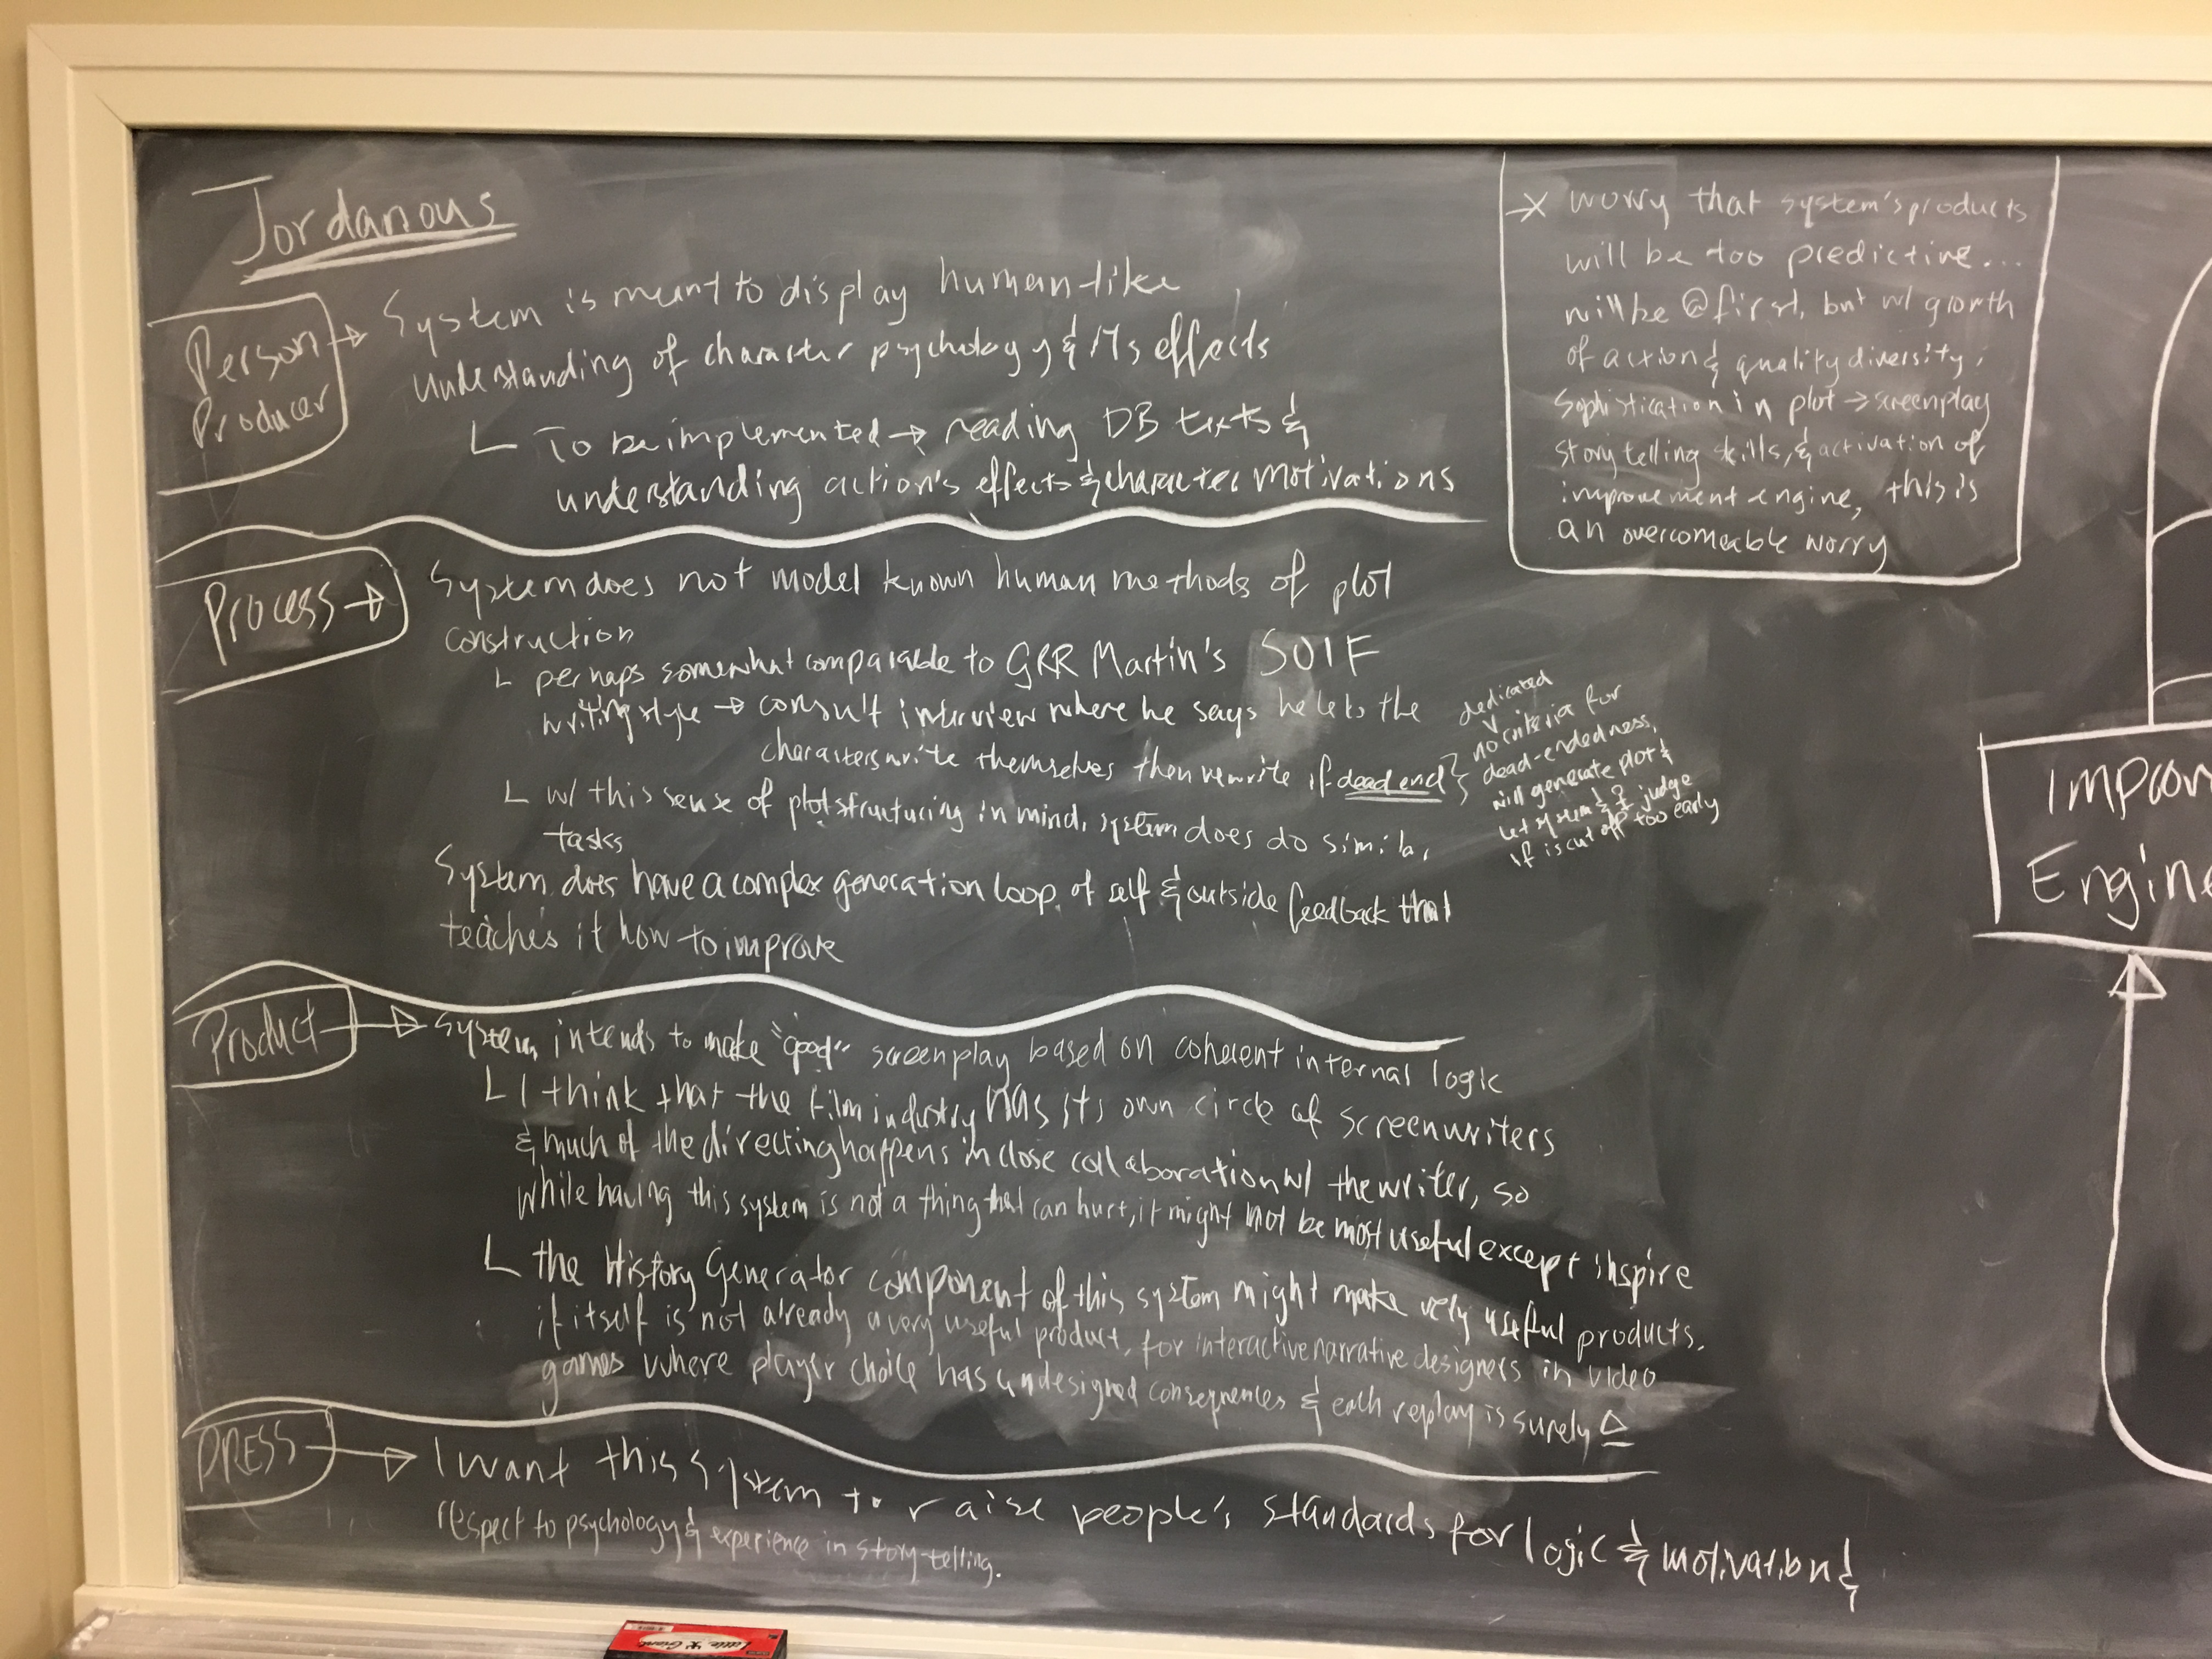 Jordanous
Person
Producer
→ System is meant to display human-like
understanding of character psychology & its effects
└ To be implemented → reading DB texts &
understanding action's effects & character motivations
Process →
System does not model known human methods of plot
construction
└ perhaps somewhat comparable to GRR Martin's SOIF
writing style → consult interview where he says he lets the
characters write themselves then rewrite if dead end
dedicated
no criteria for
dead-endedness,
will generate plot &
let system & judge
if is cut off too early
└ w/ this sense of plot structuring in mind, system does do similar
tasks
System does have a complex generation loop of self & outside feedback that
teaches it how to improve
Product → System intends to make "good" screenplay based on coherent internal logic
└ I think that the film industry has its own circle of screenwriters
& much of the directing happens in close collaboration w/ the writer, so
while having this system is not a thing that can hurt, it might not be most useful except inspire
└ the History Generator component of this system might make very useful products,
if itself is not already a very useful product, for interactive narrative designers in video
games where player choice has undesigned consequences & each replay is surely Δ
PRESS → I want this system to raise people's standards for logic & motivation &
respect to psychology & experience in story-telling.
→X worry that system's products
will be too predictive...
will be @ first, but w/ growth
of action & quality diversity,
sophistication in plot → screenplay
storytelling skills, & activation of
improvement engine, this is
an overcomeable worry
Improv
Engine
Little Giant